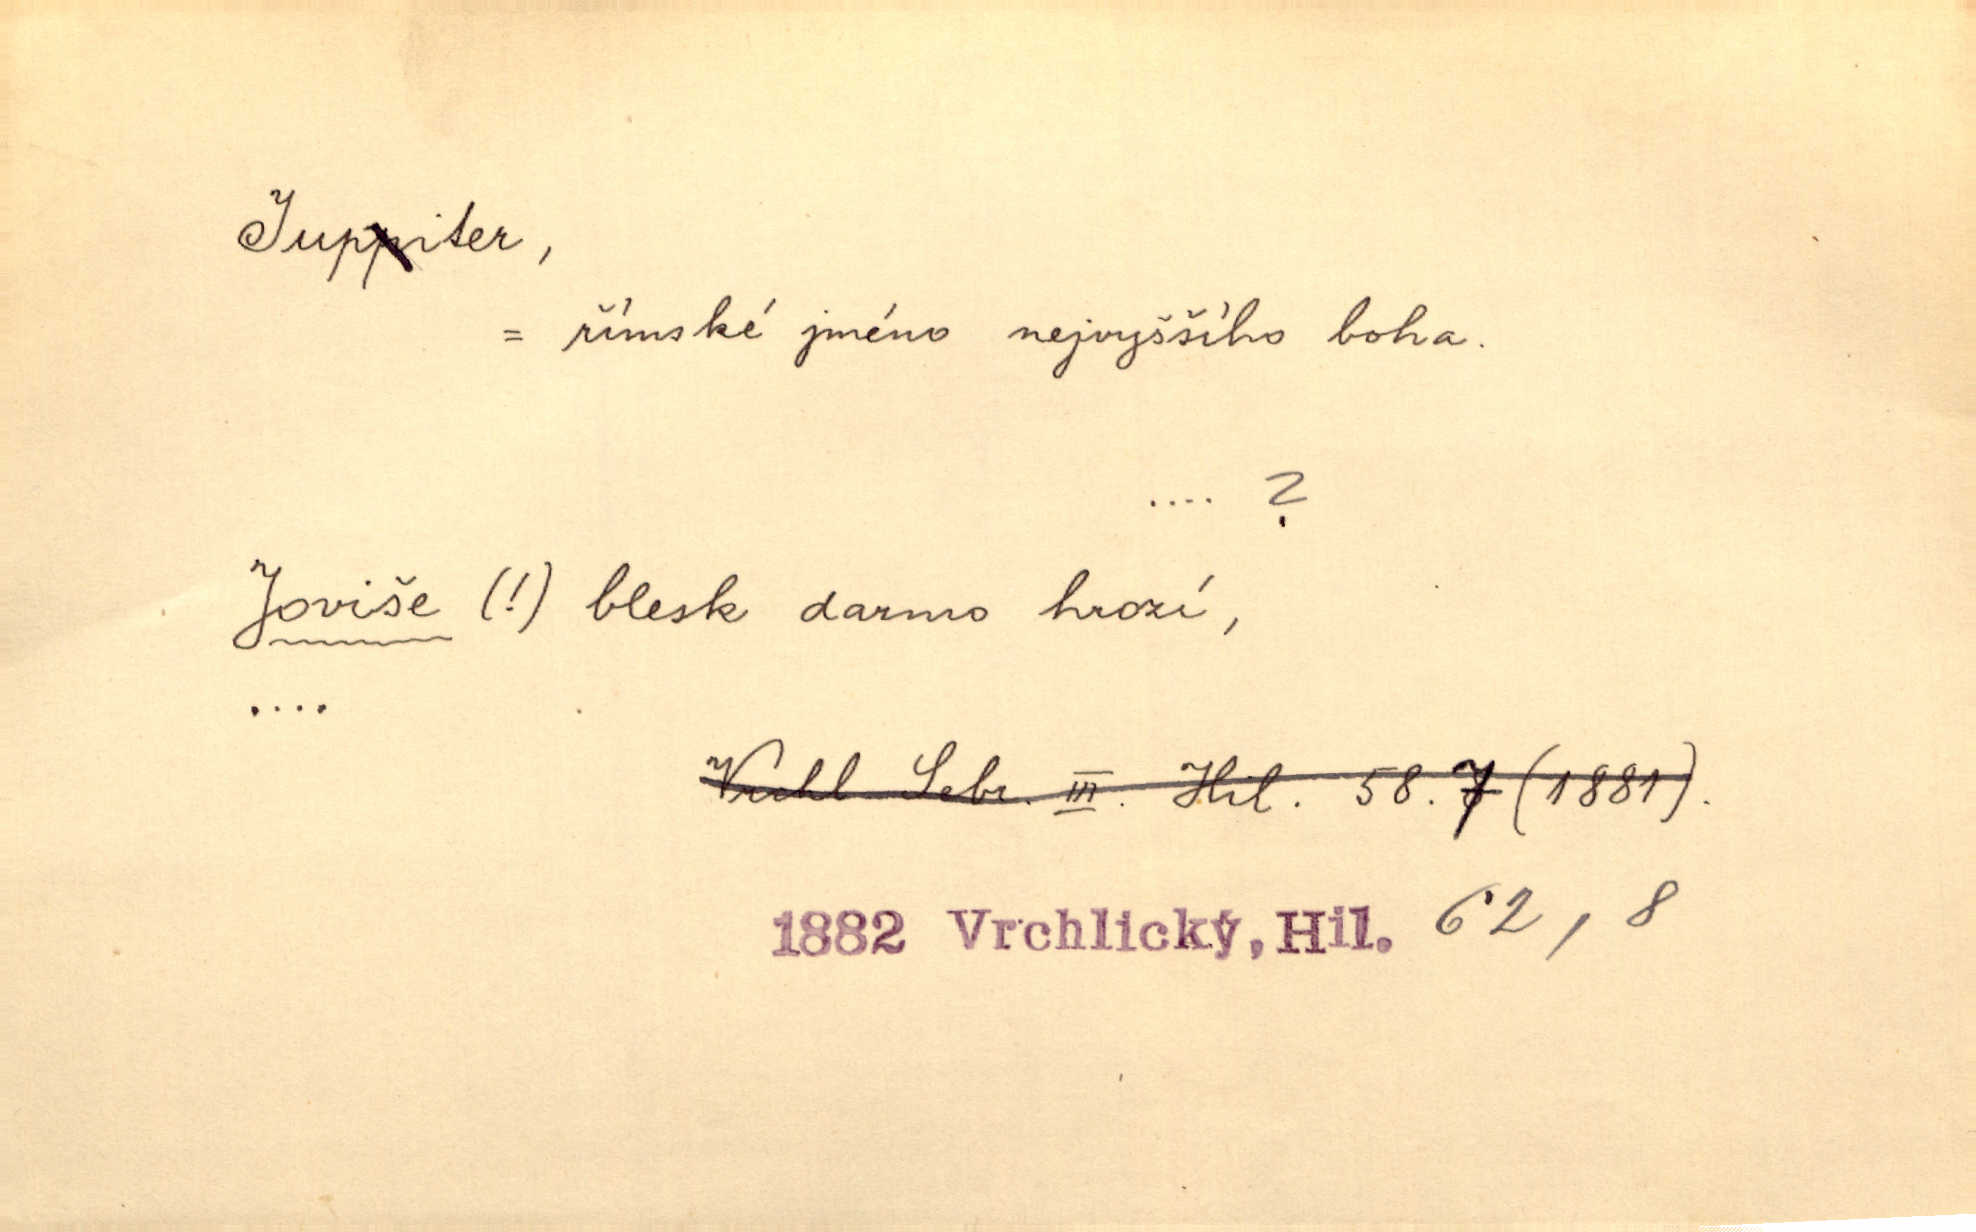 Juppiter,
= římské jméno nejvyššího boha.
.... ?
Joviše (!) blesk darmo hrozí,
....
Vrchl Sebr. III. Hil. 58.7 (1881).
1882 Vrchlický, Hil. 62, 8